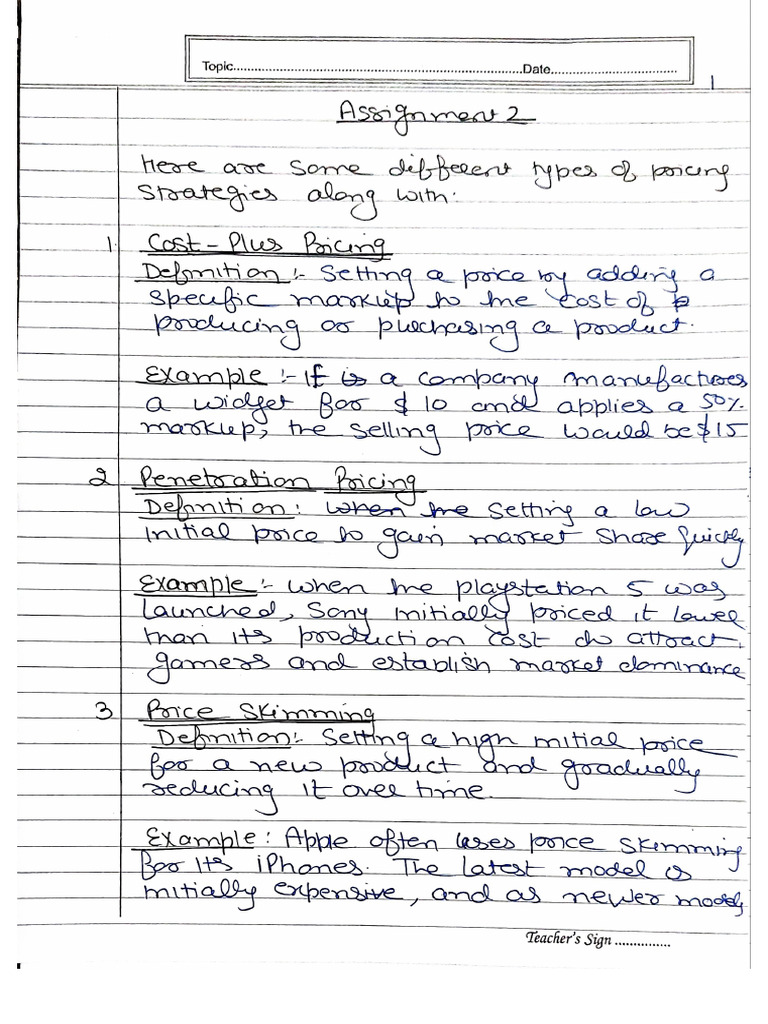 Topic..........................................................................Date.................................
1
Assignment 2
Here are some different types of pricing
Strategies along with:
1. Cost-Plus Pricing
Definition:- Setting a price by adding a
specific markup to the cost of p
producing or purchasing a product.
Example:- If is a company manufactures
a widget for $10 and applies a 50%
markup, the selling price would be $15
2 Penetration Pricing
Definition: when the setting a low
initial price to gain market share quickly
Example:- when the playstation 5 was
launched, Sony initially priced it lower
than its production cost to attract
gamers and establish market dominance
3 Price Skimming
Definition:- Setting a high initial price
for a new product and gradually
reducing it over time.
Example: Apple often uses price skimming
for its iPhones. The latest model is
initially expensive, and as newer models
Teacher's Sign ...............